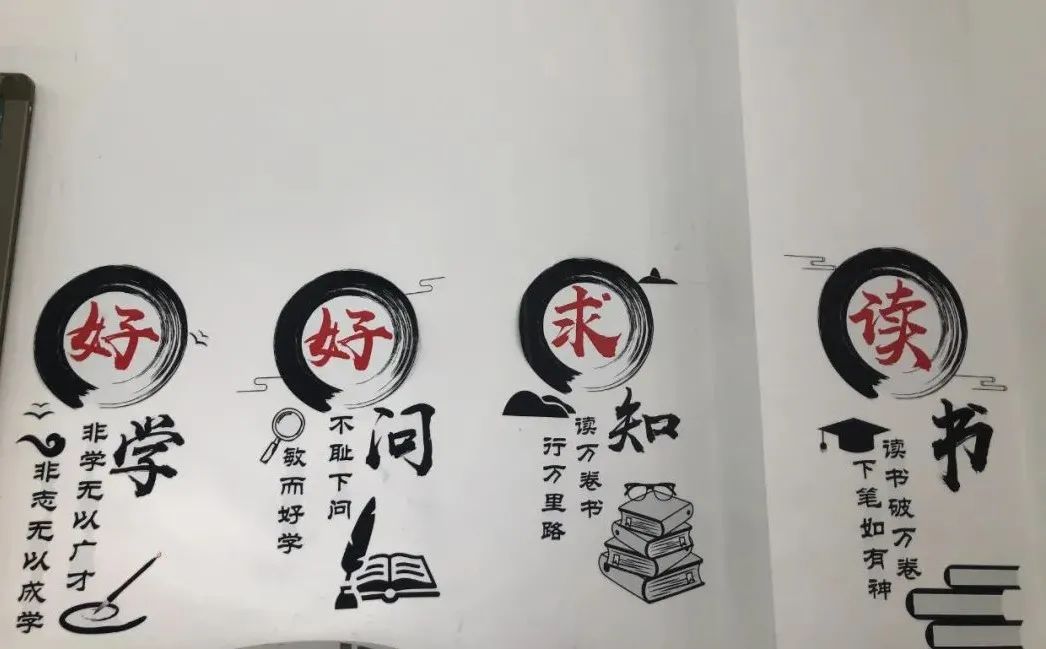 好学
非学无以广才
非志无以成学
好问
不耻下问
敏而好学
求知
读万卷书
行万里路
读书
读书破万卷
下笔如有神